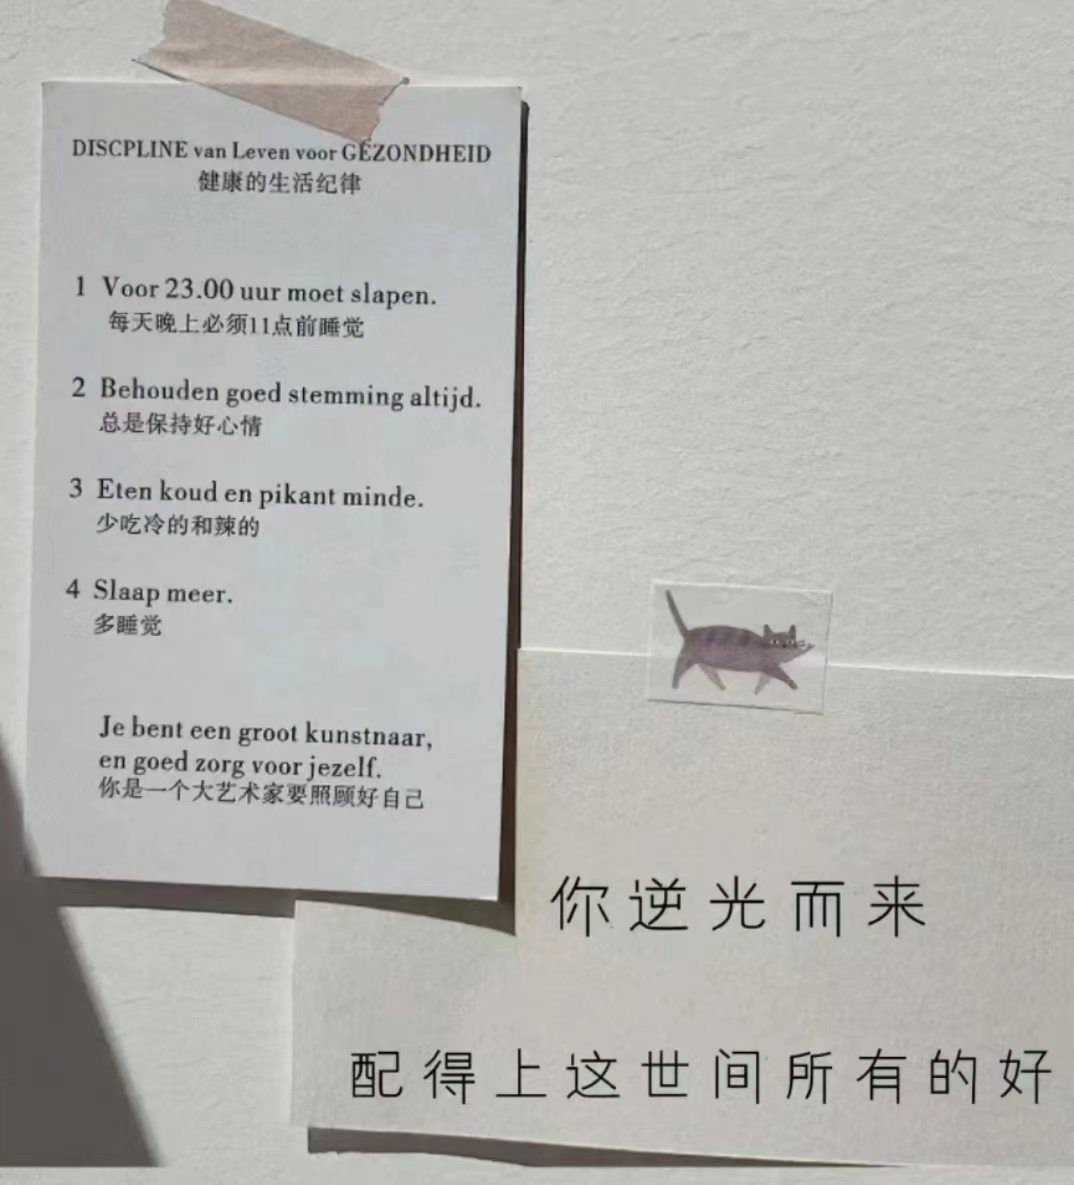 DISCPLINE van Leven voor GEZONDHEID
健康的生活纪律
1 Voor 23.00 uur moet slapen.
每天晚上必须11点前睡觉
2 Behouden goed stemming altijd.
总是保持好心情
3 Eten koud en pikant minde.
少吃冷的和辣的
4 Slaap meer.
多睡觉
Je bent een groot kunstnaar,
en goed zorg voor jezelf.
你是一个大艺术家要照顾好自己
你逆光而来
配得上这世间所有的好